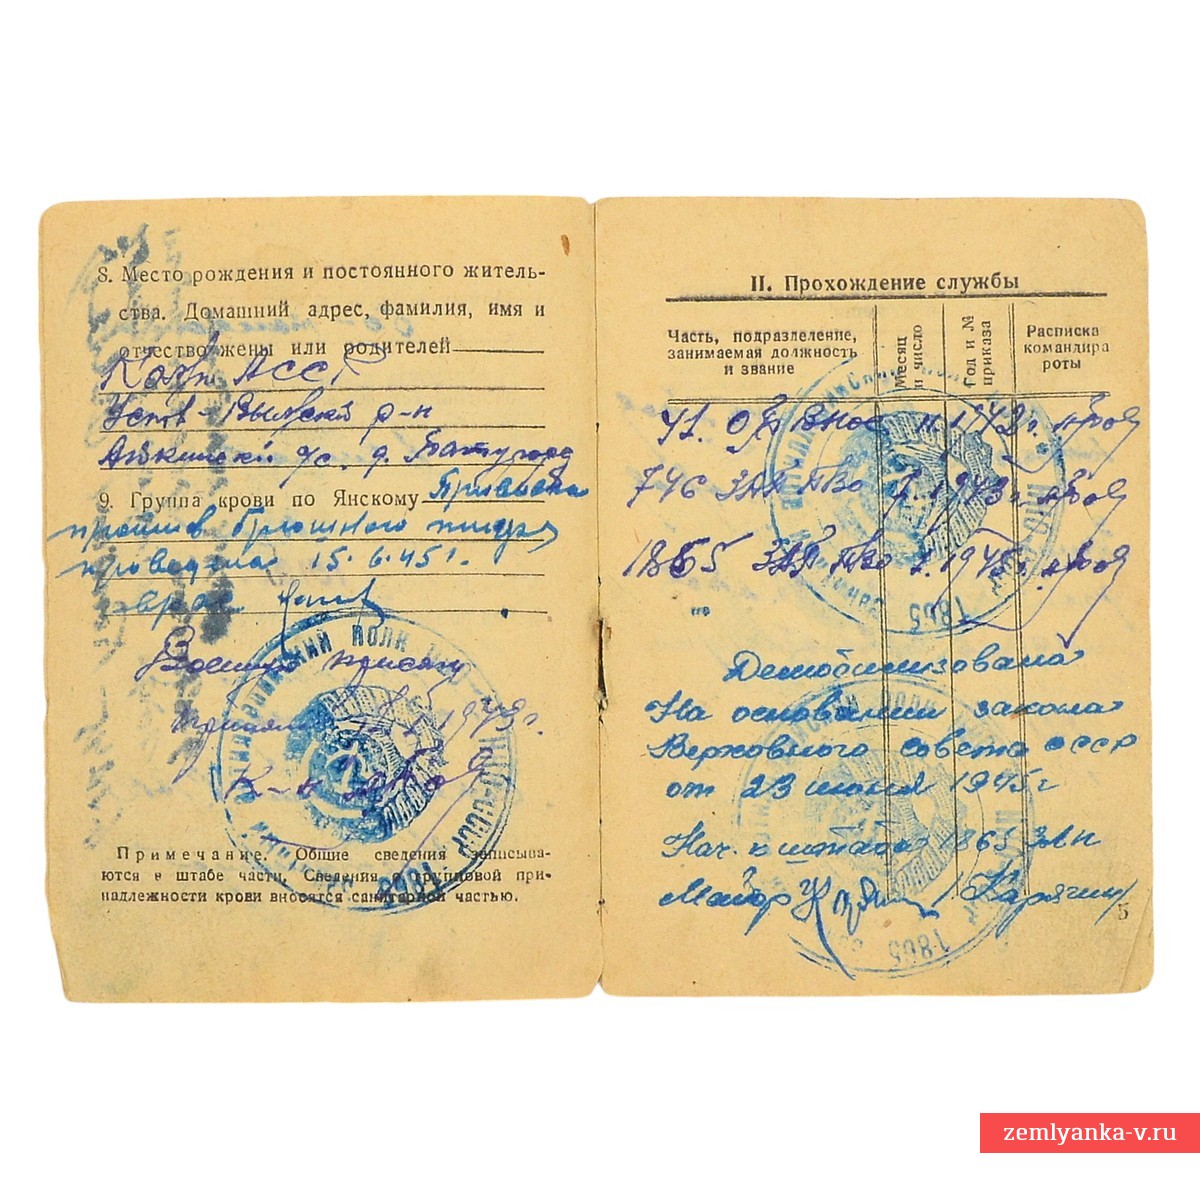 8. Место рождения и постоянного житель-
ства. Домашний адрес, фамилия, имя и
отчество жены или родителей
Коми АССР
Усть-Вымский р-н
Айкинский с/с. д.
9. Группа крови по Янскому Прививка
против брюшного тифа
проведена 15.6.45 г.
врач
Военную присягу
принял 1943 г.
К-н
Примечание. Общие сведения записыва-
ются в штабе части. Сведения о групповой при-
надлежности крови вносятся санитарной частью.
II. Прохождение службы
Часть, подразделение,
занимаемая должность
и звание
Месяц
и число
Год и №
приказа
Расписка
командира
роты
41. ВНОС 1943 г.
746 ЗАП ПВО 1943 г.
1865 ЗАП ПВО 1945 г.
Демобилизована
На основании закона
Верховного совета СССР
от 23 июня 1945 г
Нач. штаба 1865 ЗАП
Майор / Карягин /
5
1865
1865
1865
zemlyanka-v.ru